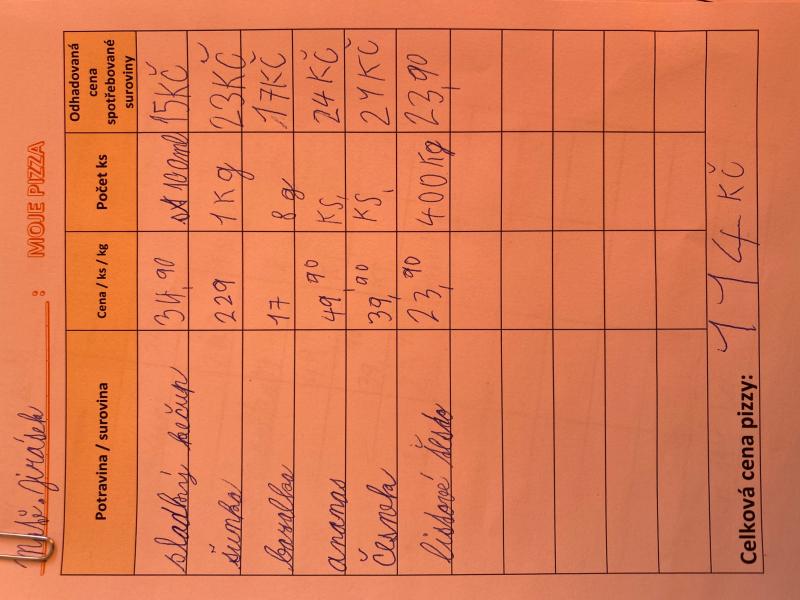 Jirásek : MOJE PIZZA
Potravina / surovina Cena / ks / kg Počet ks Odhadovaná cena spotřebované suroviny
sladký kečup 34,90 100ml 15KČ
šunka 229 1Kg 23KČ
bazalka 17 8g 17KČ
ananas 49,90 KS, 24KČ
česnek 39,90 KS, 24KČ
listové těsto 23,90 400Kg 23,90
Celková cena pizzy: 114 KČ